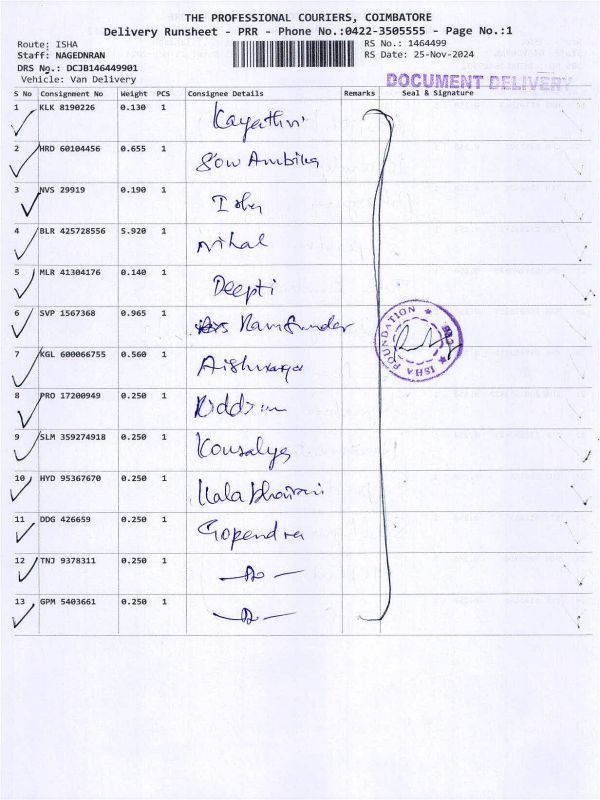 THE PROFESSIONAL COURIERS, COIMBATORE
Delivery Runsheet - PRR - Phone No.:0422-3505555 - Page No.:1
Route: ISHA
RS No.: 1464499
Staff: NAGEDNRAN
RS Date: 25-Nov-2024
DRS No.: DCJB146449901
Vehicle: Van Delivery
DOCUMENT DELIVERY
S No Consignment No Weight PCS Consignee Details Remarks Seal & Signature
1 KLK 8190226 0.130 1 Gayathri
2 HRD 60104456 0.655 1 Sow Ambika
3 NVS 29919 0.190 1 Isha
4 BLR 425728556 5.920 1 Nihal
5 MLR 41304176 0.140 1 Deepti
6 SVP 1567368 0.965 1 Ramsundar
7 KGL 600066755 0.560 1 Aishwarya
8 PRO 17200949 0.250 1
9 SLM 359274918 0.250 1 Kousalya
10 HYD 95367670 0.250 1 Kalabhairavi
11 DDG 426659 0.250 1 Gopendra
12 TNJ 9378311 0.250 1
13 GPM 5403661 0.250 1
ISHA FOUNDATION